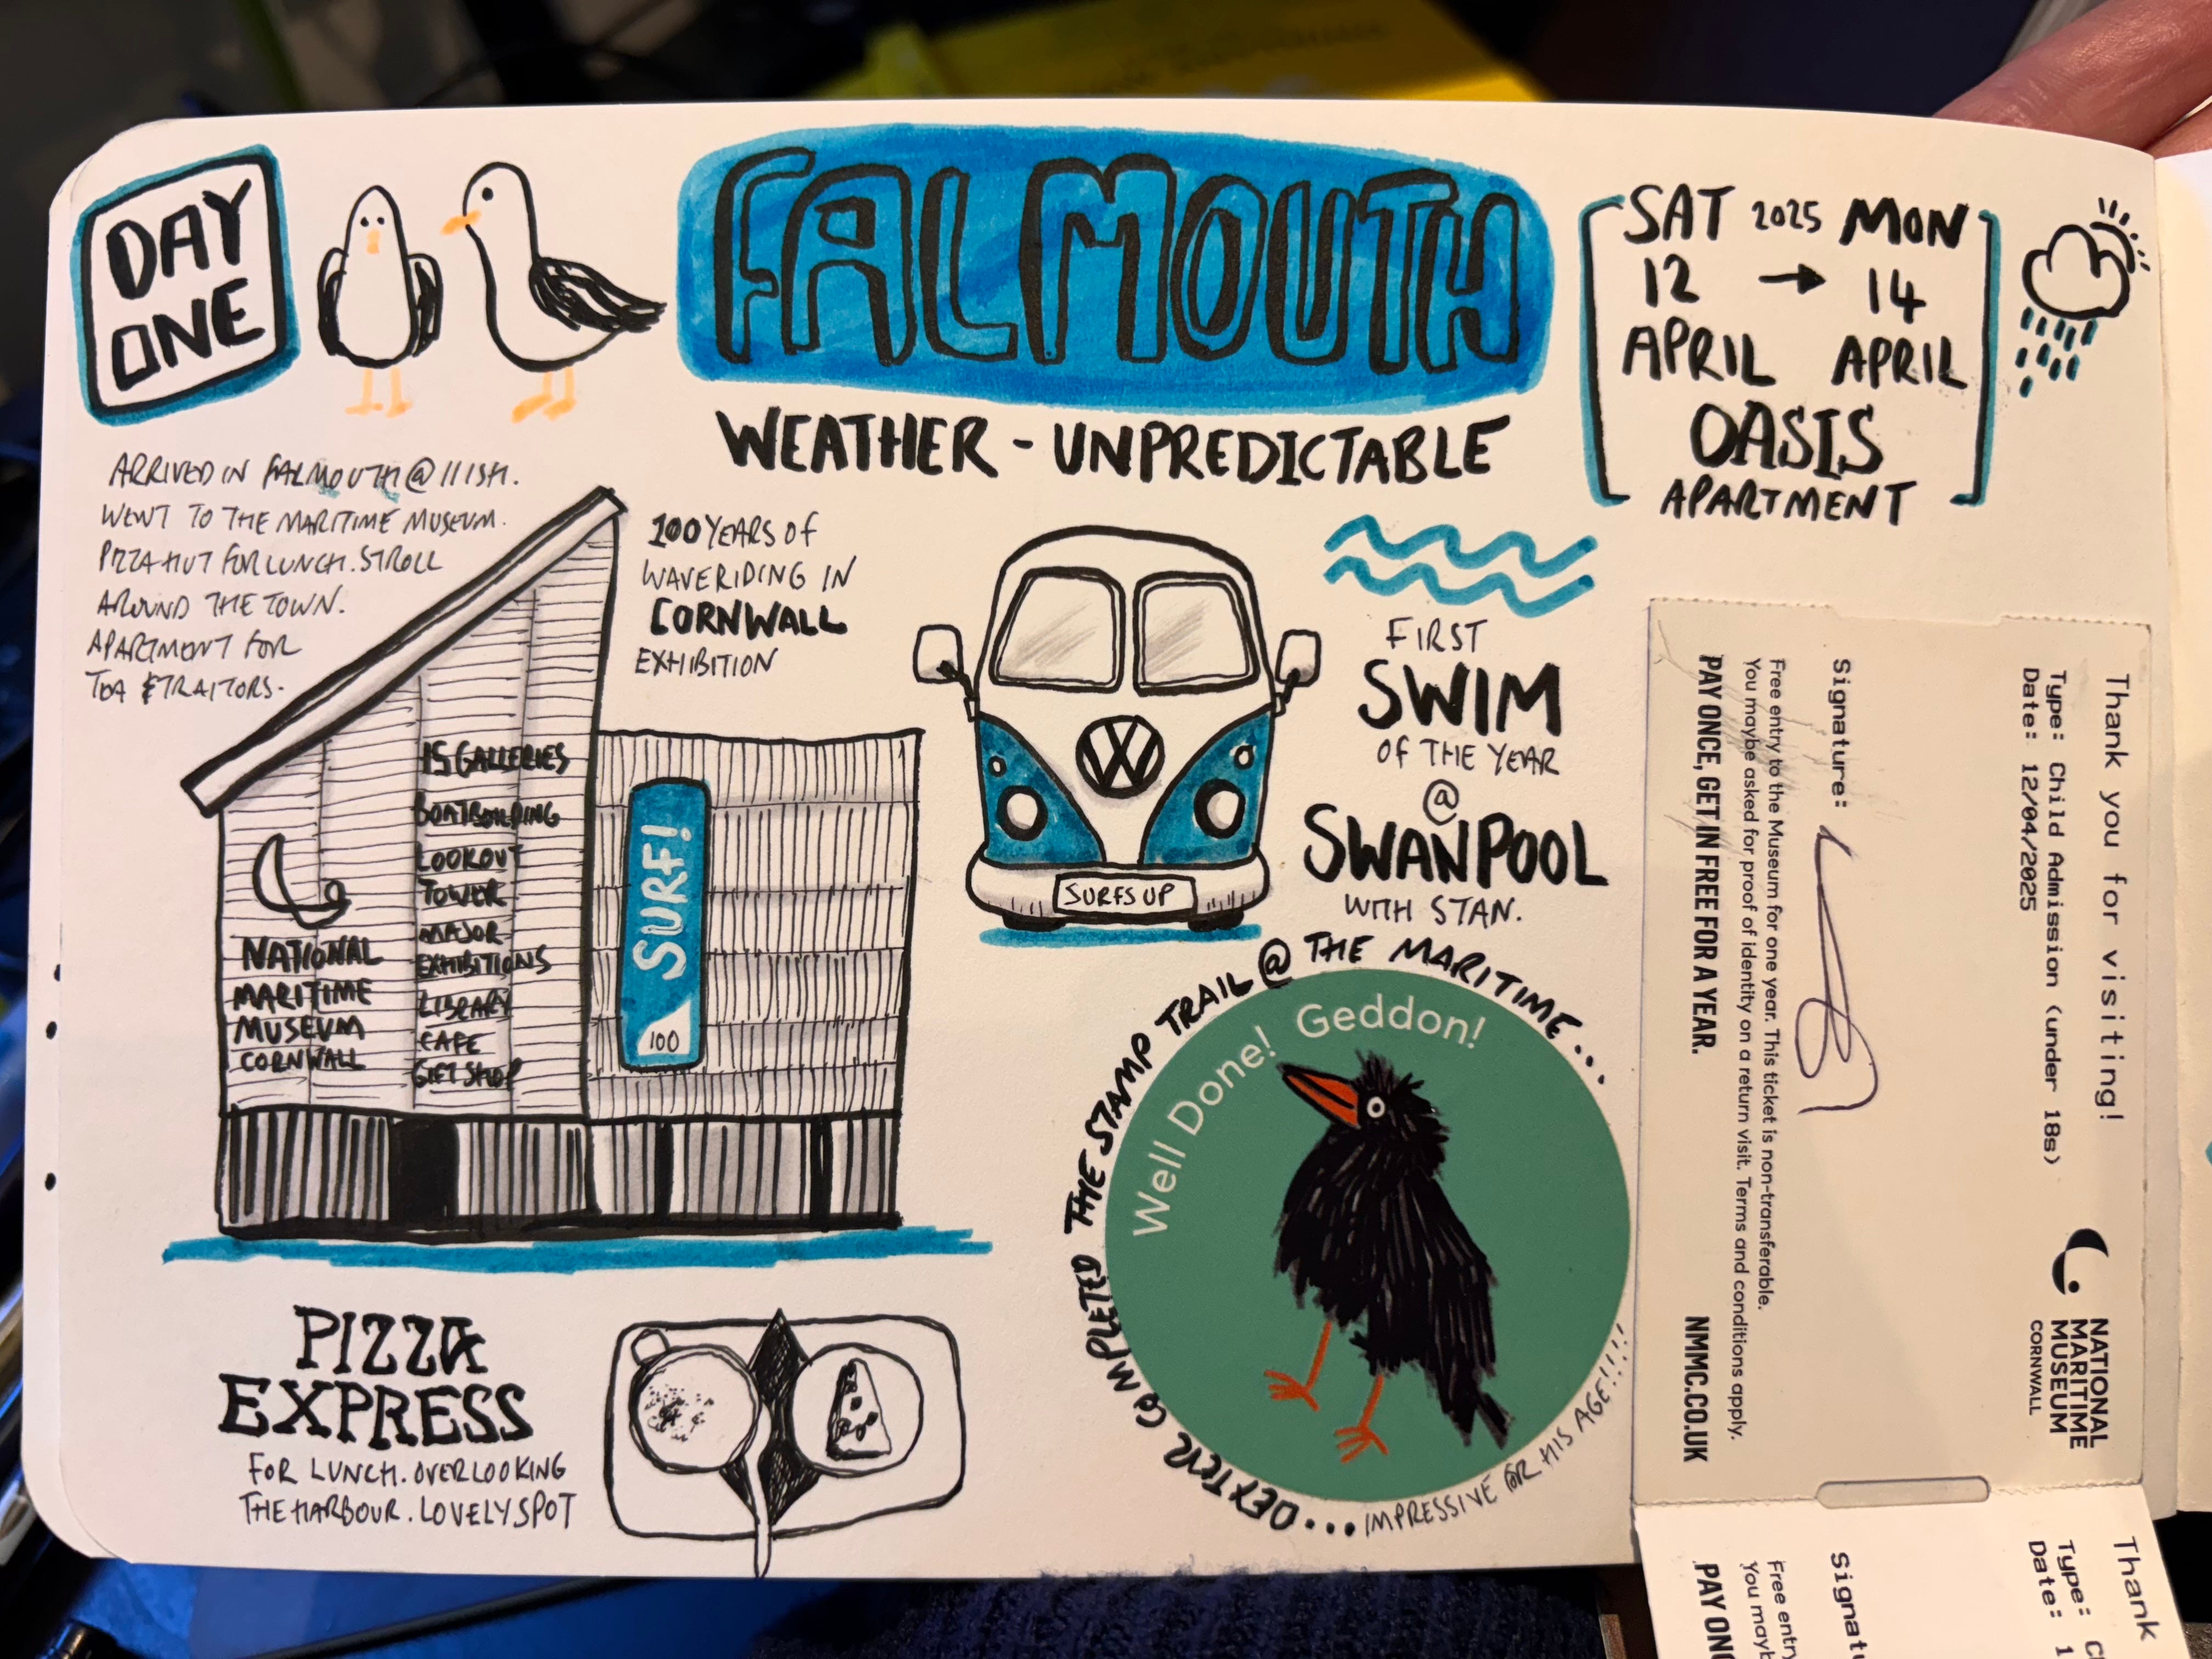 DAY
ONE
FALMOUTH
WEATHER - UNPREDICTABLE
SAT 2025 MON
12 → 14
APRIL APRIL
OASIS
APARTMENT
ARRIVED IN FALMOUTH @ 11ISH.
WENT TO THE MARITIME MUSEUM.
PIZZA HUT FOR LUNCH. STROLL
AROUND THE TOWN.
APARTMENT FOR
TEA & TRAITORS.
100 YEARS OF
WAVERIDING IN
CORNWALL
EXHIBITION
15 GALLERIES
BOATBUILDING
LOOKOUT
TOWER
MAJOR
EXHIBITIONS
LIBRARY
CAFE
GIFT SHOP
NATIONAL
MARITIME
MUSEUM
CORNWALL
SURF!
100
SURFS UP
FIRST
SWIM
OF THE YEAR
@
SWANPOOL
WITH STAN.
DEXTER COMPLETED THE STAMP TRAIL @ THE MARITIME...
...IMPRESSIVE FOR HIS AGE!!!!
Well Done! Geddon!
PIZZA
EXPRESS
FOR LUNCH. OVERLOOKING
THE HARBOUR. LOVELY SPOT
Thank you for visiting!
Type: Child Admission (under 18s)
Date: 12/04/2025
NATIONAL
MARITIME
MUSEUM
CORNWALL
Signature:
Free entry to the Museum for one year. This ticket is non-transferable.
You maybe asked for proof of identity on a return visit. Terms and conditions apply.
PAY ONCE, GET IN FREE FOR A YEAR.
NMMC.CO.UK
Thank
Type: C
Date: 1
Signatu
Free entry
You mayb
PAY ONC